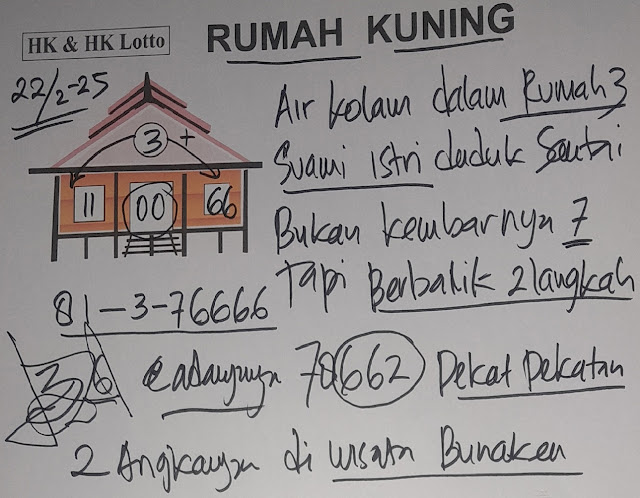 HK & HK Lotto
RUMAH KUNING
22/2-25
Air kolam dalam Rumah 3
3 +
Suami istri duduk Santai
11 00 66
Bukan kembarnya 7
Tapi Berbalik 2 langkah
81-3-76666
36
Cadangnya 78662 Dekat Dekatan
2 Angkanya di wisata Bunaken